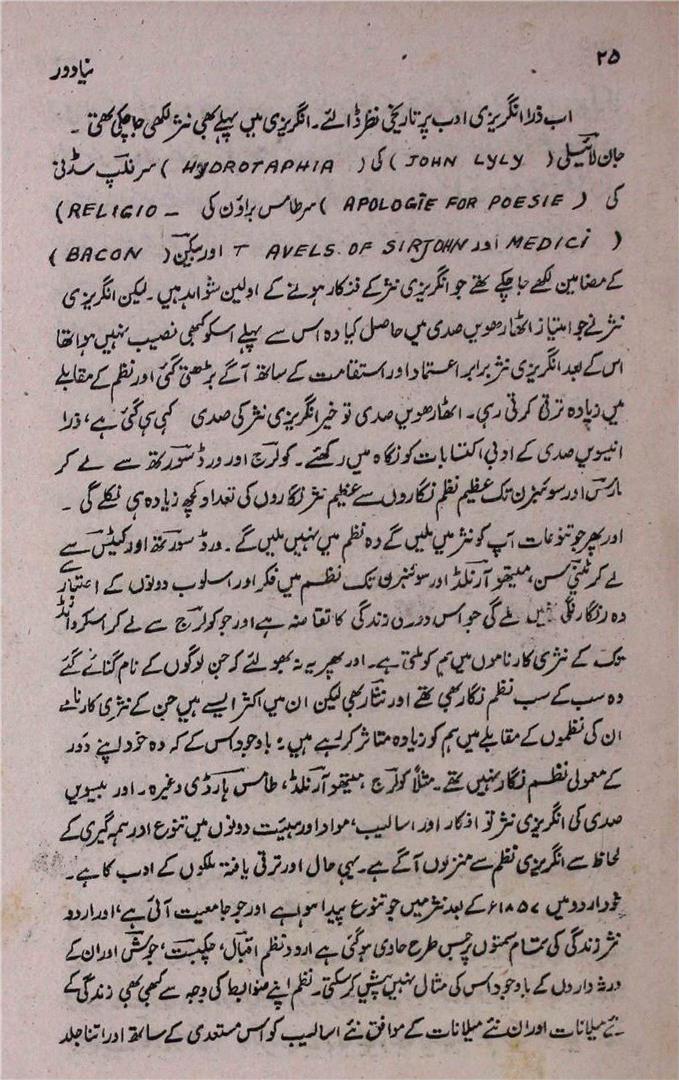 ۲۵
نیا دور
اب ذرا انگریزی ادب پر تاریخی نظر ڈالئے۔ انگریزی میں پہلے بھی نثر لکھی جا چکی تھی۔
جان لائیلی (JOHN LYLY) کی (HYDROTAPHIA) سر فلپ سڈنی
کی (APOLOGIE FOR POESIE) سر طامس براؤن کی (RELIGIO –
MEDICI) اور T AVELS. OF SIRJOHN اور بیکن (BACON)
کے مضامین لکھے جا چکے تھے جو انگریزی نثر کے فنکار ہونے کے اولین شواہد ہیں۔ لیکن انگریزی
نثر نے جو امتیاز اٹھارھویں صدی میں حاصل کیا وہ اس سے پہلے اسکو کبھی نصیب نہیں ہوا تھا
اس کے بعد انگریزی نثر برابر اعتماد اور استقامت کے ساتھ آگے بڑھتی گئی اور نظم کے مقابلے
میں زیادہ ترقی کرتی رہی۔ اٹھارھویں صدی تو خیر انگریزی نثر کی صدی کہی ہی گئی ہے، ذرا
انیسویں صدی کے ادبی اکتسابات کو نگاہ میں رکھئے۔ کولرج اور ورڈسورتھ سے لے کر
مارس اور سوئنبرن تک عظیم نظم نگاروں سے عظیم نثر نگاروں کی تعداد کچھ زیادہ ہی نکلے گی۔
اور پھر جو تنوعات آپ کو نثر میں ملیں گے وہ نظم میں نہیں ملیں گے۔ ورڈسورتھ اور کیٹس سے
لے کر ٹینی سن، میتھو آرنلڈ اور سوئنبرن تک نظم میں فکر اور اسلوب دونوں کے اعتبار سے
وہ رنگارنگی نہیں ملے گی جو اس دور کی زندگی کا تقاضہ ہے اور جو کولرج سے لے کر اسکروائلڈ
تک کے نثری کارناموں میں ہم کو ملتی ہے۔ اور پھر یہ نہ بھولئے کہ جن لوگوں کے نام گنائے گئے
وہ سب کے سب نظم نگار بھی تھے اور نثار بھی لیکن ان میں اکثر ایسے ہیں جن کے نثری کارنامے
ان کی نظموں کے مقابلے میں ہم کو زیادہ متاثر کرتے ہیں باوجود اس کے کہ وہ خود اپنے دور
کے معمولی نظم نگار نہیں تھے۔ مثلاً کولرج، میتھو آرنلڈ، طامس ہارڈی وغیرہ۔ اور بیسویں
صدی کی انگریزی نثر تو افکار اور اسالیب، مواد اور ہیئت دونوں میں تنوع اور ہمہ گیری کے
لحاظ سے انگریزی نظم سے منزلوں آگے ہے۔ یہی حال اور ترقی یافتہ ملکوں کے ادب کا ہے۔
خود اردو میں ۱۸۵۷ء کے بعد نثر میں جو تنوع پیدا ہوا ہے اور جو جامعیت آئی ہے، اور اردو
نثر زندگی کی تمام سمتوں پر جس طرح حاوی ہو گئی ہے اردو نظم اقبال، چکبست، جوش اور ان کے
ورثہ داروں کے باوجود اس کی مثال نہیں پیش کر سکتی۔ نظم اپنے ضوابط کی وجہ سے کبھی بھی زندگی کے
نئے میلانات اور ان نئے میلانات کے موافق نئے اسالیب کو اس مستعدی کے ساتھ اور اتنا جلد